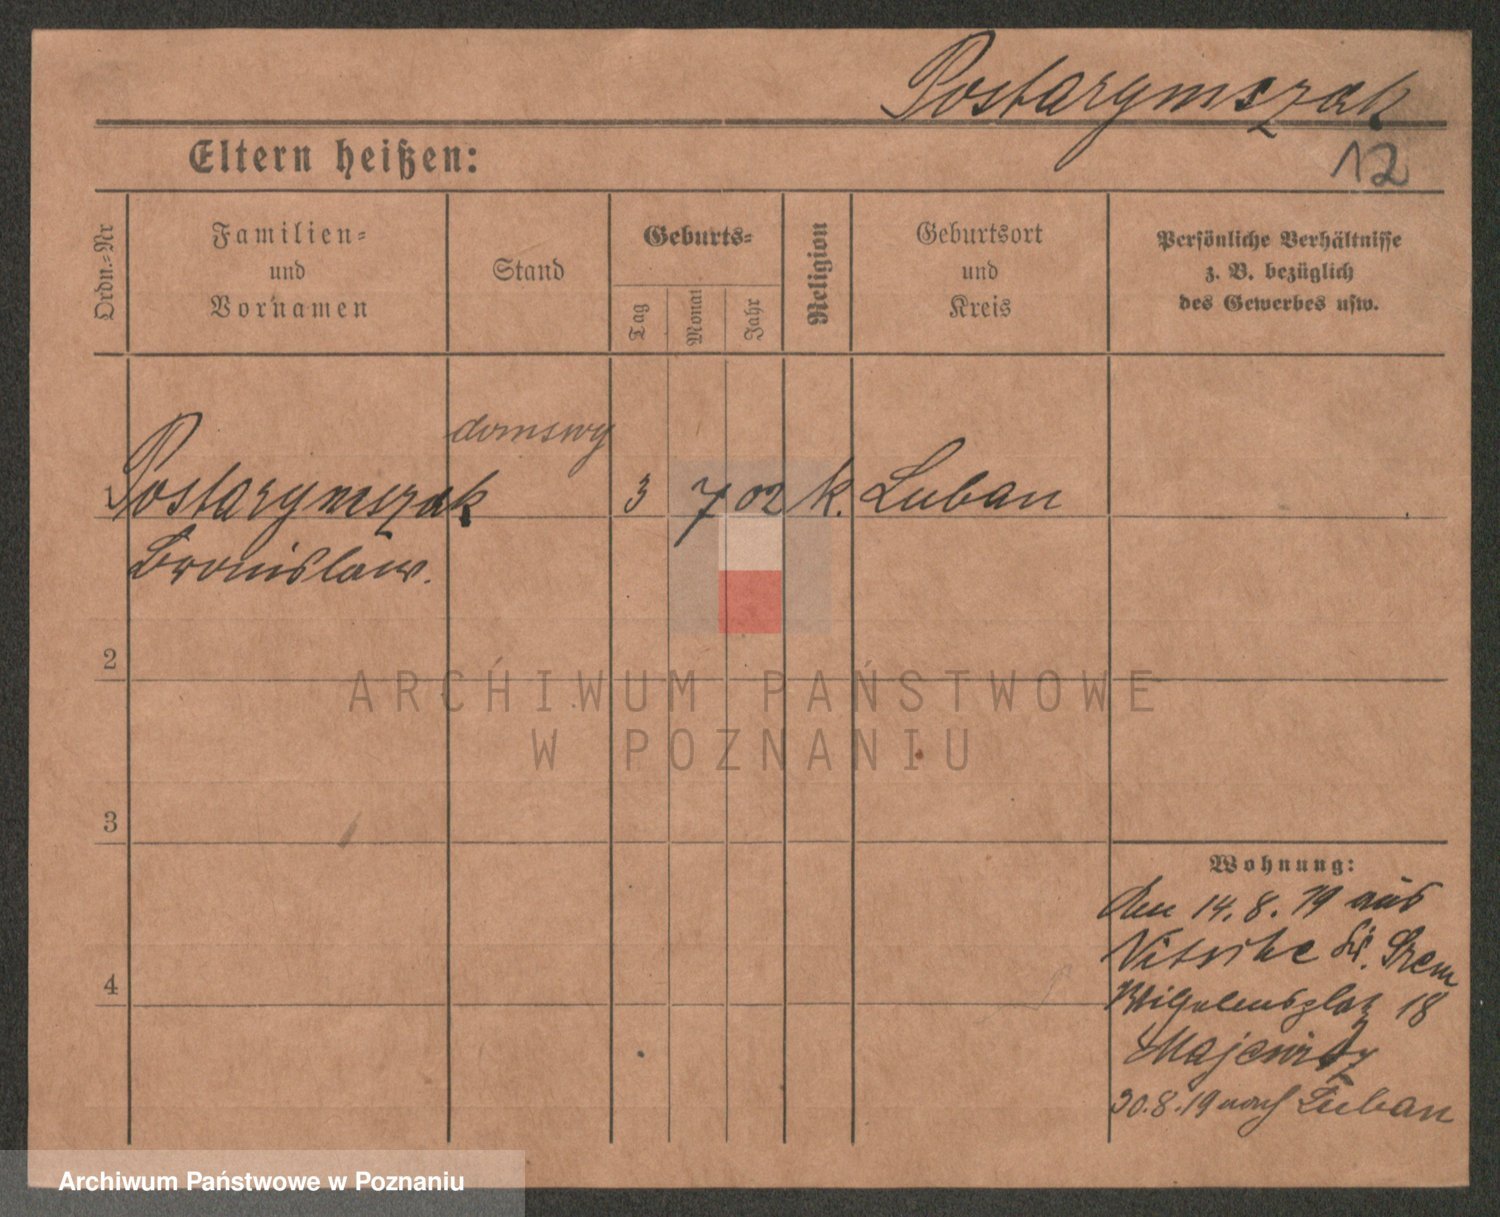 Postarymszak
12
Eltern heißen:
Ordn.-Nr
Familien-
und
Vornamen
Stand
Geburts-
Tag
Monat
Jahr
Religion
Geburtsort
und
Kreis
Persönliche Verhältnisse
z. B. bezüglich
des Gewerbes usw.
domowy
1 Postarymszak 3 7 02 k. Luban
Bronislaw.
2
ARCHIWUM PAŃSTWOWE
W POZNANIU
3
Wohnung:
den 14.8.19 aus
Kr. Srem
4
Wilhelmsplatz 18
30.8.19 nach Luban
Archiwum Państwowe w Poznaniu